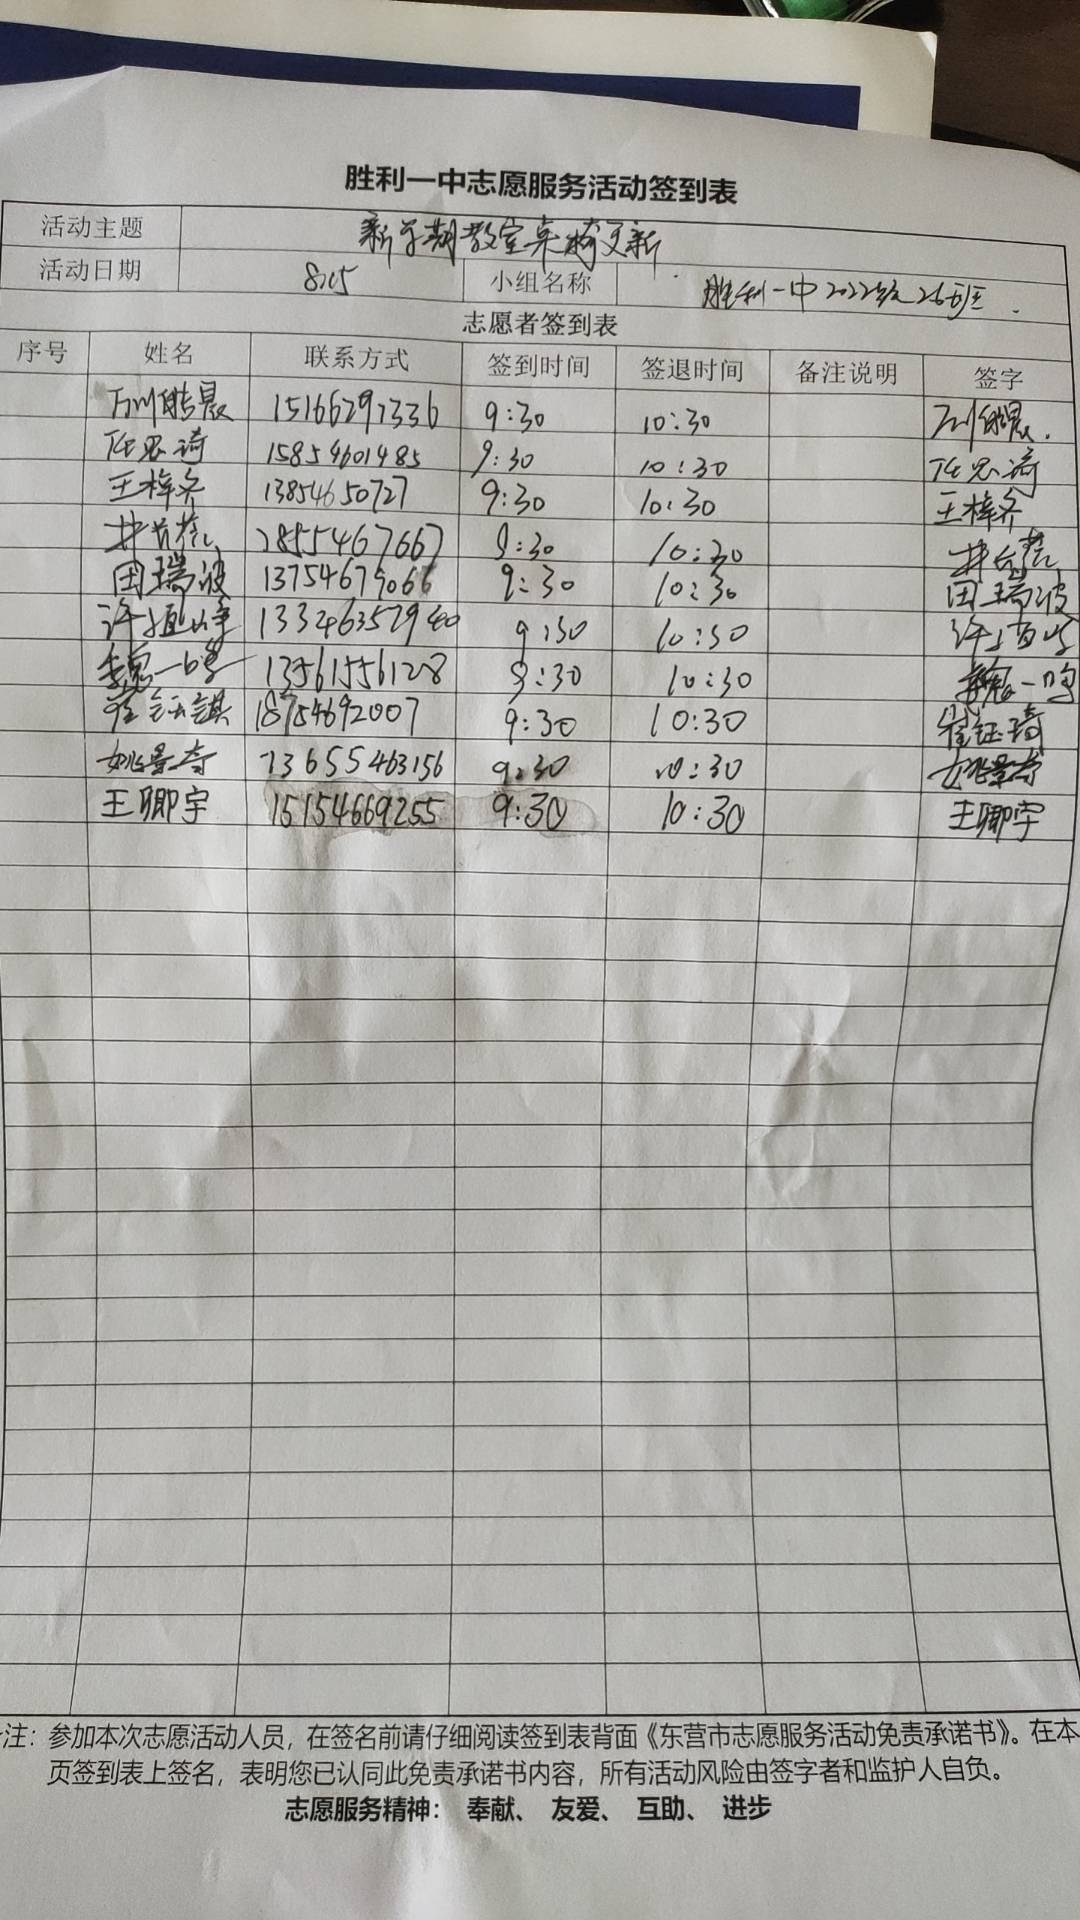 胜利一中志愿服务活动签到表
活动主题 新学期教室桌椅更新
活动日期 小组名称 胜利一中2022级26班
志愿者签到表
序号 姓名 联系方式 签到时间 签退时间 备注说明 签字
15166291336 9:30 10:30
任思琦 15854601485 9:30 10:30 任思琦
王梓齐 13854650727 9:30 10:30 王梓齐
9:30 10:30
田瑞波 13754679066 9:30 10:30 田瑞波
13346352940 9:30 10:30
魏一鸣 13561556128 9:30 10:30 魏一鸣
18754692007 9:30 10:30 崔钰琦
姚景奇 13655463156 9:30 10:30 姚景奇
王卿宇 15154669255 9:30 10:30 王卿宇
注：参加本次志愿活动人员，在签名前请仔细阅读签到表背面《东营市志愿服务活动免责承诺书》。在本
页签到表上签名，表明您已认同此免责承诺书内容，所有活动风险由签字者和监护人自负。
志愿服务精神： 奉献、 友爱、 互助、 进步